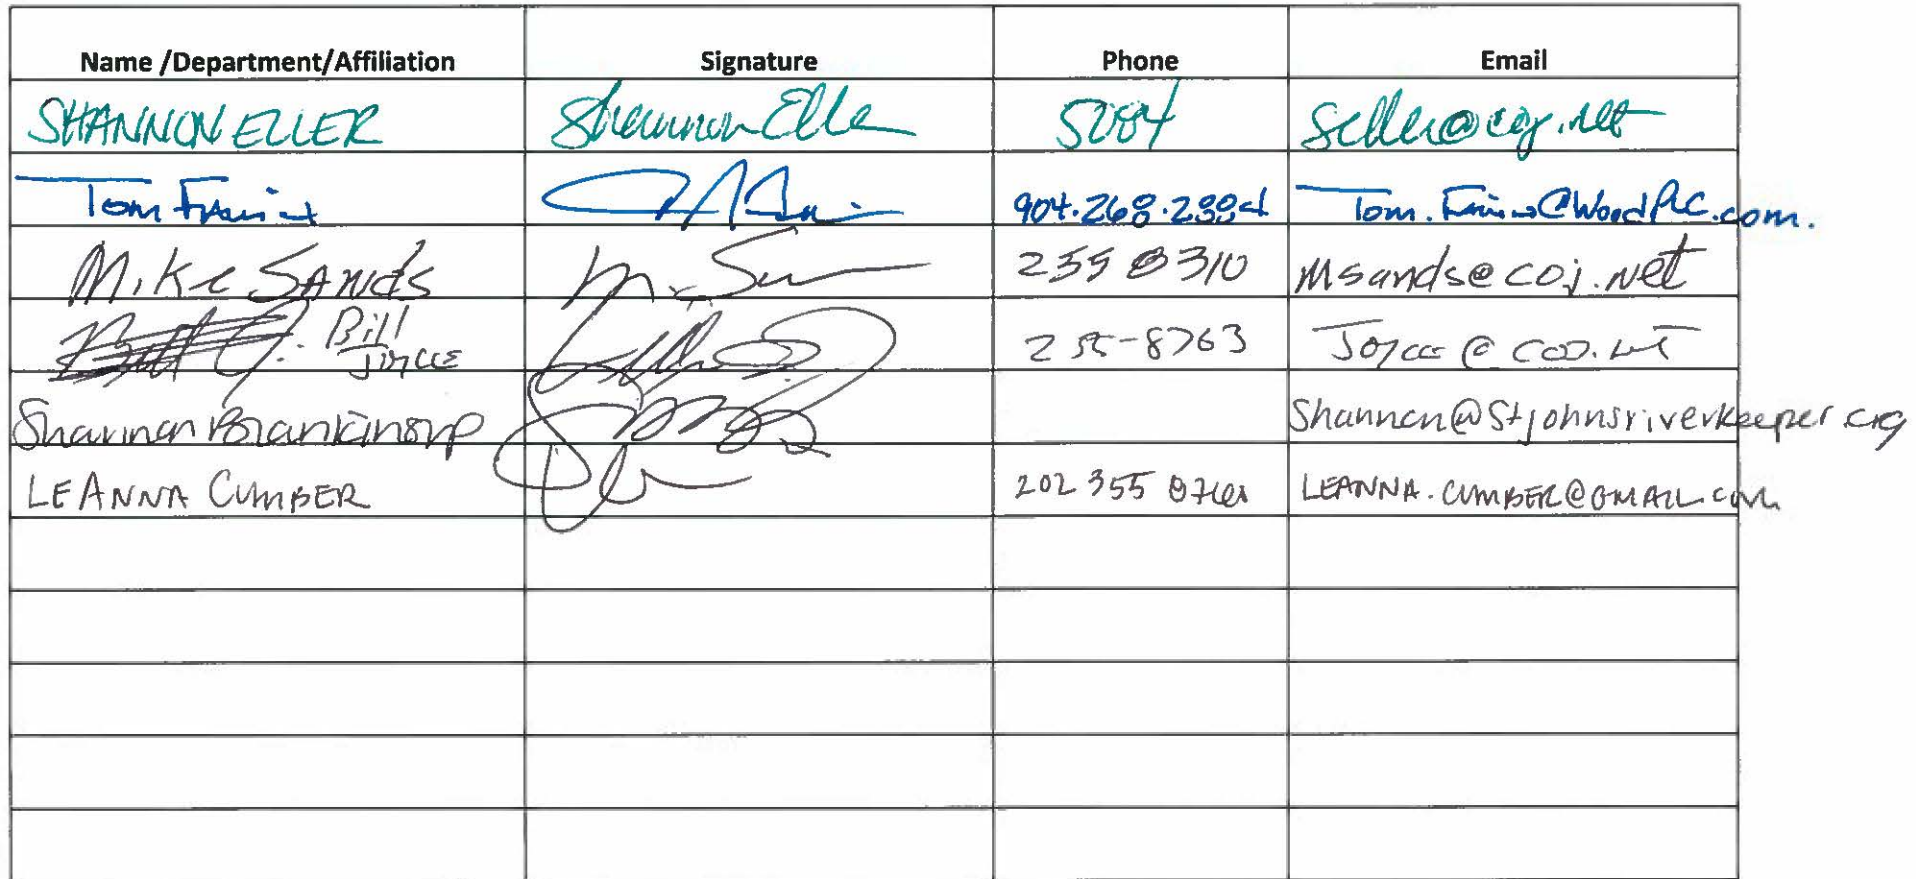 Name /Department/Affiliation Signature Phone Email
SHANNON ELLER Shannon Eller seller@coj.net
Tom 904.268. Tom. @WoodPLC.com.
Mike Sands 255 8310 Msands@coj.net
Bill Joyce 255-8763 Joyce@coj.net
Shannon Blankinship Shannon@Stjohnsriverkeeper.org
LEANNA CUMBER 202 355 LEANNA.CUMBER@GMAIL.com